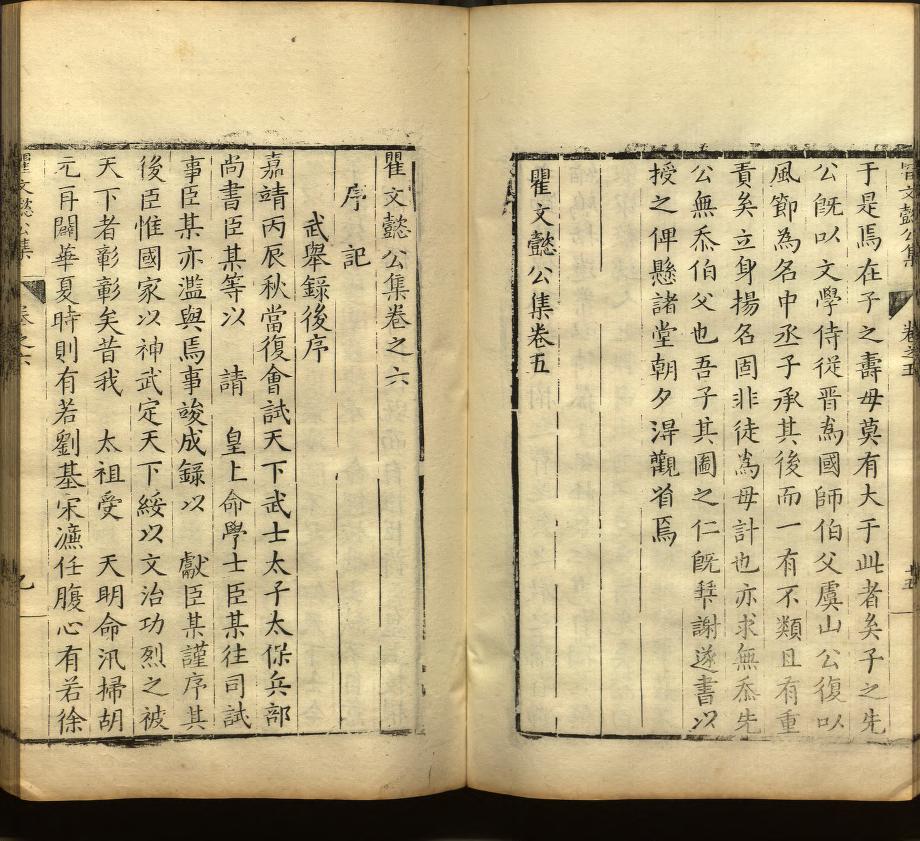 于是焉在子之壽母莫有大于此者矣子之先
公旣以文學侍從晋為國師伯父虞山公復以
風節為名中丞子承其後而一有不類且有重
責矣立身揚名固非徒為母計也亦求無忝先
公無忝伯父也吾子其圖之仁旣拜謝遂書以
授之俾懸諸堂朝夕淂觀省焉
瞿文懿公集卷五
瞿文懿公集卷之六
序 記
武舉録後序
嘉靖丙辰秋當復會試天下武士太子太保兵部
尚書臣某等以 請 皇上命學士臣某往司試
事臣某亦濫與焉事竣成録以 獻臣某謹序其
後臣惟國家以神武定天下綏以文治功烈之被
天下者彰彰矣昔我 太祖受 天明命汛掃胡
元再闢華夏時則有若劉基宋濂任腹心有若徐
瞿文懿公集 卷之六